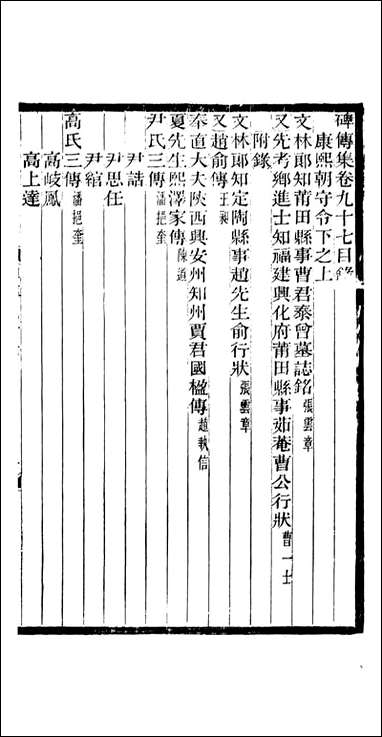 碑傳集卷九十七目錄
康熙朝守令下之上
文林郎知莆田縣事曹君泰曾墓誌銘 張雲章
又先考鄉進士知福建興化府莆田縣事茹菴曹公行狀 曹一士
附錄
文林郎知定陶縣事趙先生俞行狀 張雲章
又趙俞傳 王昶
奉直大夫陝西興安州知州賈君國楹傳 趙執信
夏先生熙澤家傳 陳道
尹氏三傳 潘挹奎
尹詰
尹思任
尹綰
高氏三傳 潘挹奎
高岐鳳
高上達